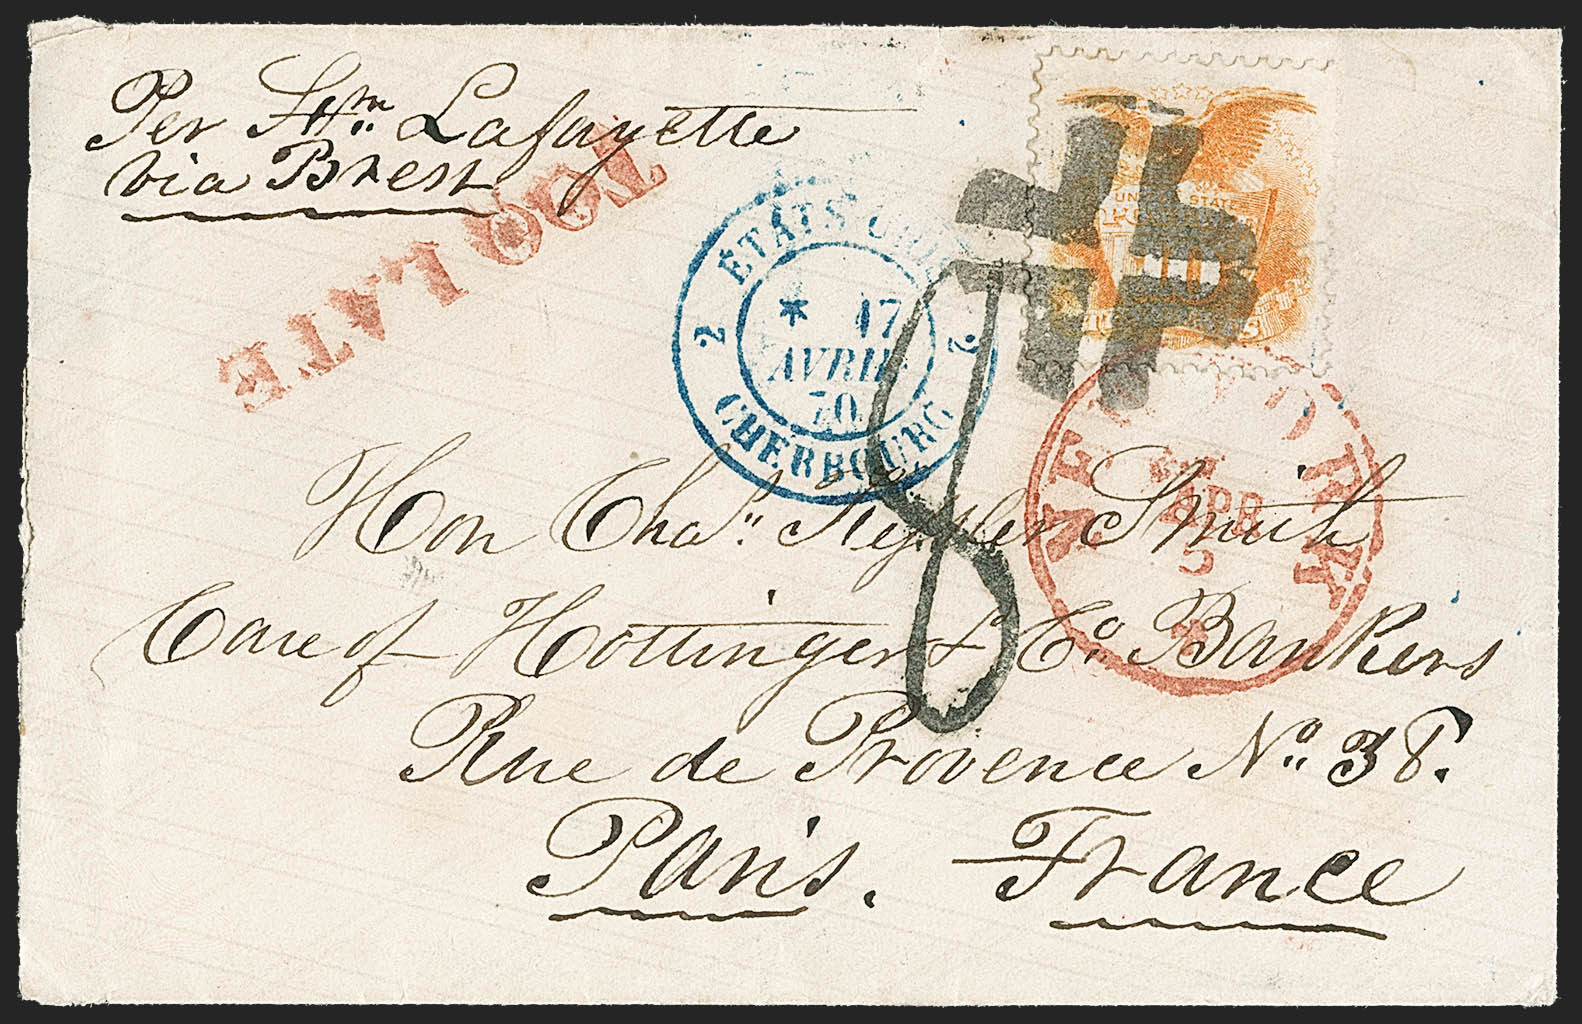 Per Stm Lafayette
via Brest
TOO LATE
2 ÉTATS-UNIS 2
* 17
AVRIL
70
CHERBOURG
UNITED STATES
10
8
NEW YORK
APR
5
Hon Chas. Smith
Care of Hottinger & Co. Bankers
Rue de Provence No. 38.
Paris. France